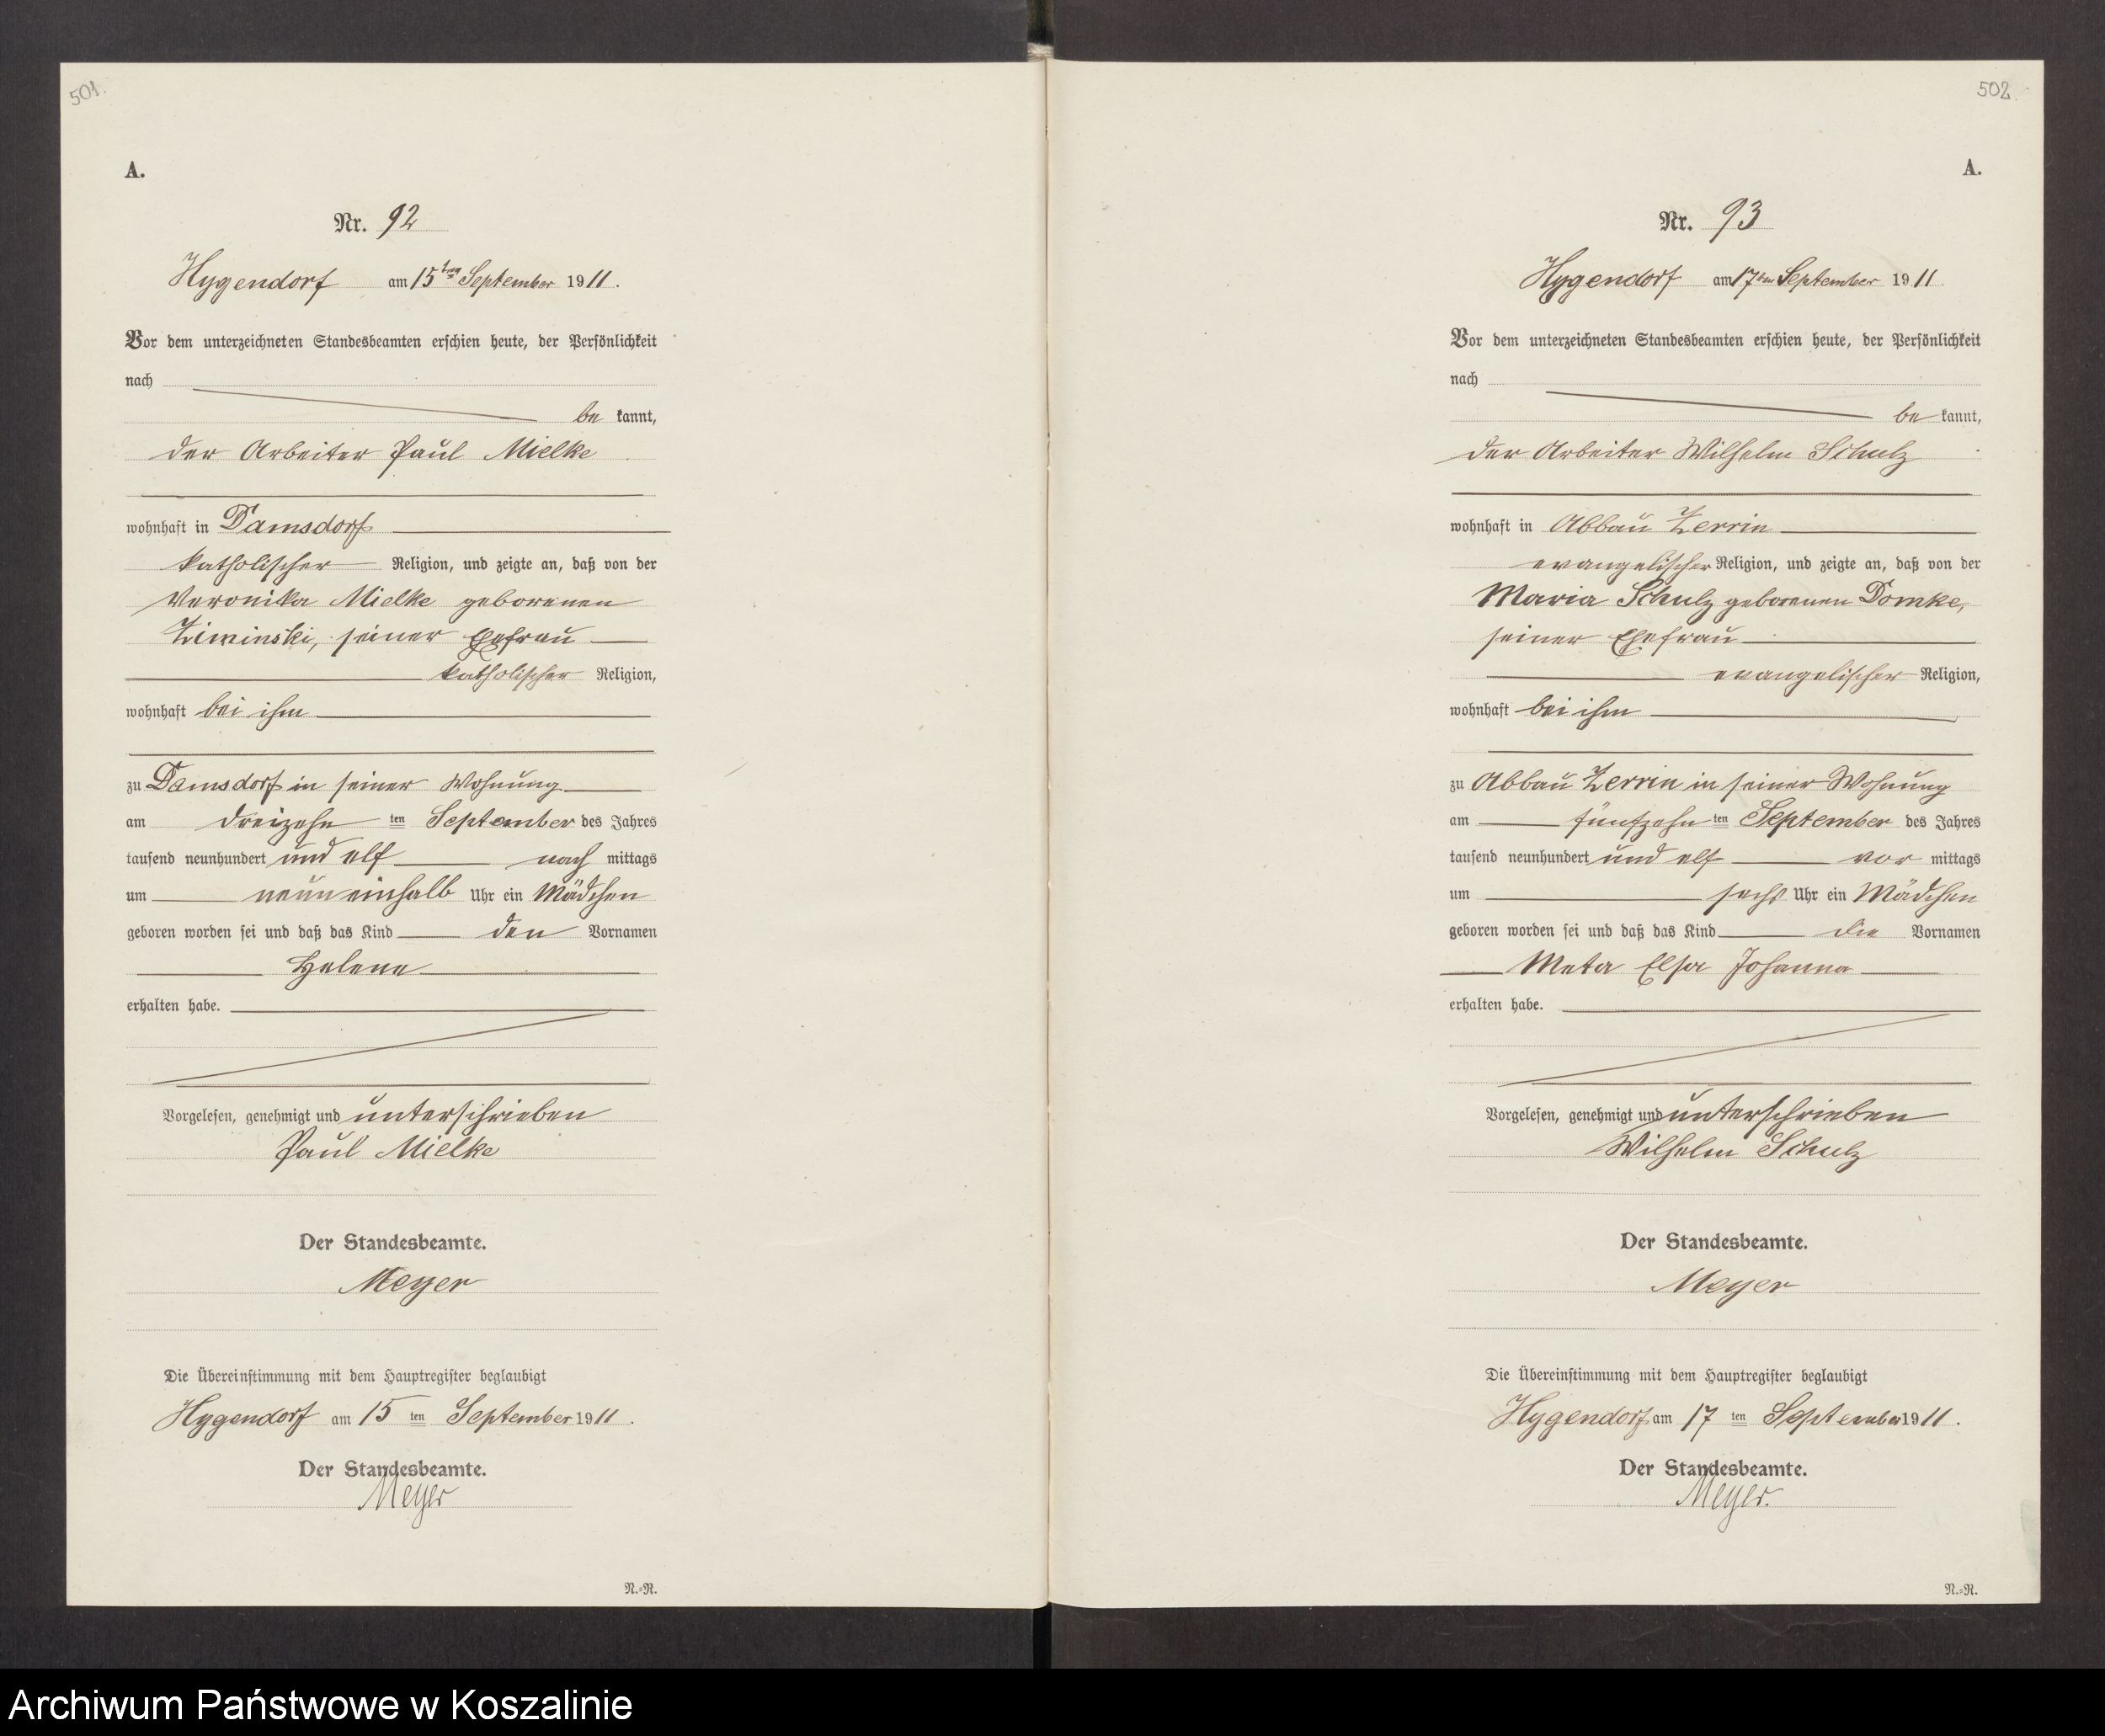 501.
A.
Nr. 92
Hygendorf am 15ten September 1911.
Vor dem unterzeichneten Standesbeamten erschien heute, der Persönlichkeit
nach
be kannt,
der Arbeiter Paul Mielke
wohnhaft in Damsdorf
katholischer Religion, und zeigte an, daß von der
Veronika Mielke geborenen
Ziminski, seiner Ehefrau
katholischer Religion,
wohnhaft bei ihm
zu Damsdorf in seiner Wohnung
am dreizehn ten September des Jahres
tausend neunhundert und elf nach mittags
um neuneinhalb Uhr ein Mädchen
geboren worden sei und daß das Kind den Vornamen
Helene
erhalten habe.
Vorgelesen, genehmigt und unterschrieben
Paul Mielke
Der Standesbeamte.
Meyer
Die Übereinstimmung mit dem Hauptregister beglaubigt
Hygendorf am 15 ten September 1911.
Der Standesbeamte.
Meyer
N.=R.
502.
A.
Nr. 93
Hygendorf am 17ten September 1911.
Vor dem unterzeichneten Standesbeamten erschien heute, der Persönlichkeit
nach
be kannt,
der Arbeiter Wilhelm Schulz
wohnhaft in Abbau Zerrin
evangelischer Religion, und zeigte an, daß von der
Maria Schulz geborenen Domke,
seiner Ehefrau
evangelischer Religion,
wohnhaft bei ihm
zu Abbau Zerrin in seiner Wohnung
am fünfzehn ten September des Jahres
tausend neunhundert und elf vor mittags
um sechs Uhr ein Mädchen
geboren worden sei und daß das Kind die Vornamen
Meta Elsa Johanna
erhalten habe.
Vorgelesen, genehmigt und unterschrieben
Wilhelm Schulz
Der Standesbeamte.
Meyer
Die Übereinstimmung mit dem Hauptregister beglaubigt
Hygendorf am 17 ten September 1911.
Der Standesbeamte.
Meyer.
N.=R.
Archiwum Państwowe w Koszalinie